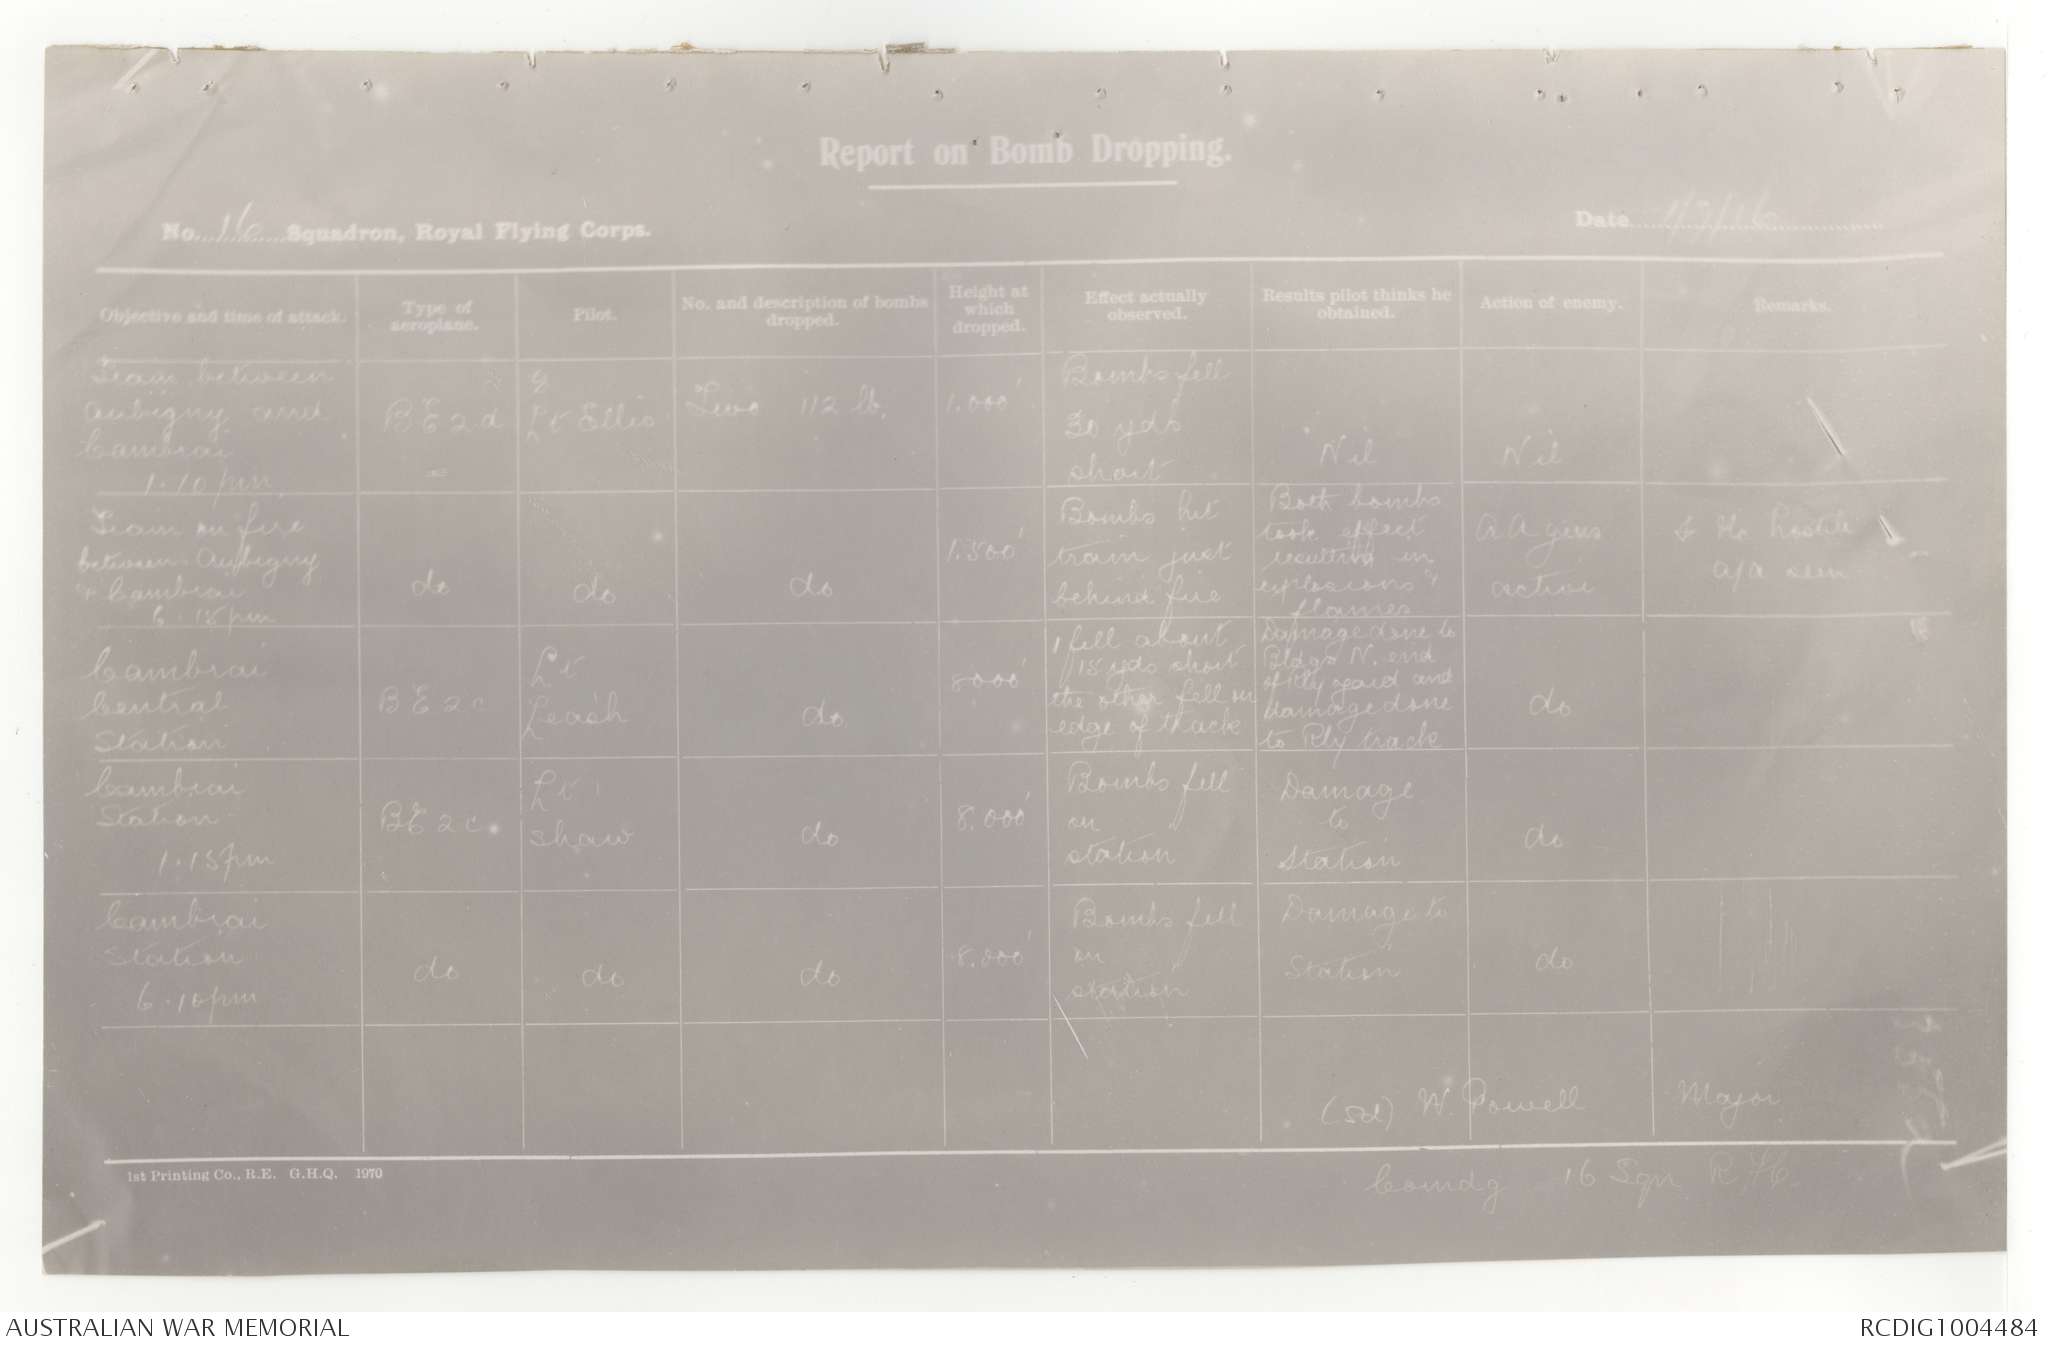 Report on Bomb Dropping.
No. 16 Squadron, Royal Flying Corps.
Date 1/7/16
Objective and time of attack.
Type of
aeroplane.
Pilot.
No. and description of bombs
dropped.
Height at
which
dropped.
Effect actually
observed.
Results pilot thinks he
obtained.
Action of enemy.
Remarks.
Train between
Aubigny and
Cambrai
1.10 pm
BE 2 d
2
Lt Ellis
Two 112 lb.
1.000'
Bombs fell
30 yds
short
Nil
Nil
Train on fire
between Aubigny
& Cambrai
6.15 pm
do
do
do
1.500'
Bombs hit
train just
behind fire
Both bombs
took effect
resulting in
explosions &
flames
A A guns
active
hostile
a/a seen
Cambrai
Central
Station
BE 2 c
Lt
Leash
do
8000'
1 fell about
15 yds short
the other fell on
edge of track
Damage done to
Bldgs N. end
of Rly yard and
damage done
to Rly track
do
Cambrai
Station
1.15 pm
BE 2 c
Lt
Shaw
do
8.000'
Bombs fell
on
station
Damage
to
Station
do
Cambrai
Station
6.10 pm
do
do
do
8.000'
Bombs fell
on
station
Damage to
Station
do
(sd) W. Powell Major
Comdg 16 Sqn RFC.
1st Printing Co., R.E. G.H.Q. 1970
AUSTRALIAN WAR MEMORIAL
RCDIG1004484